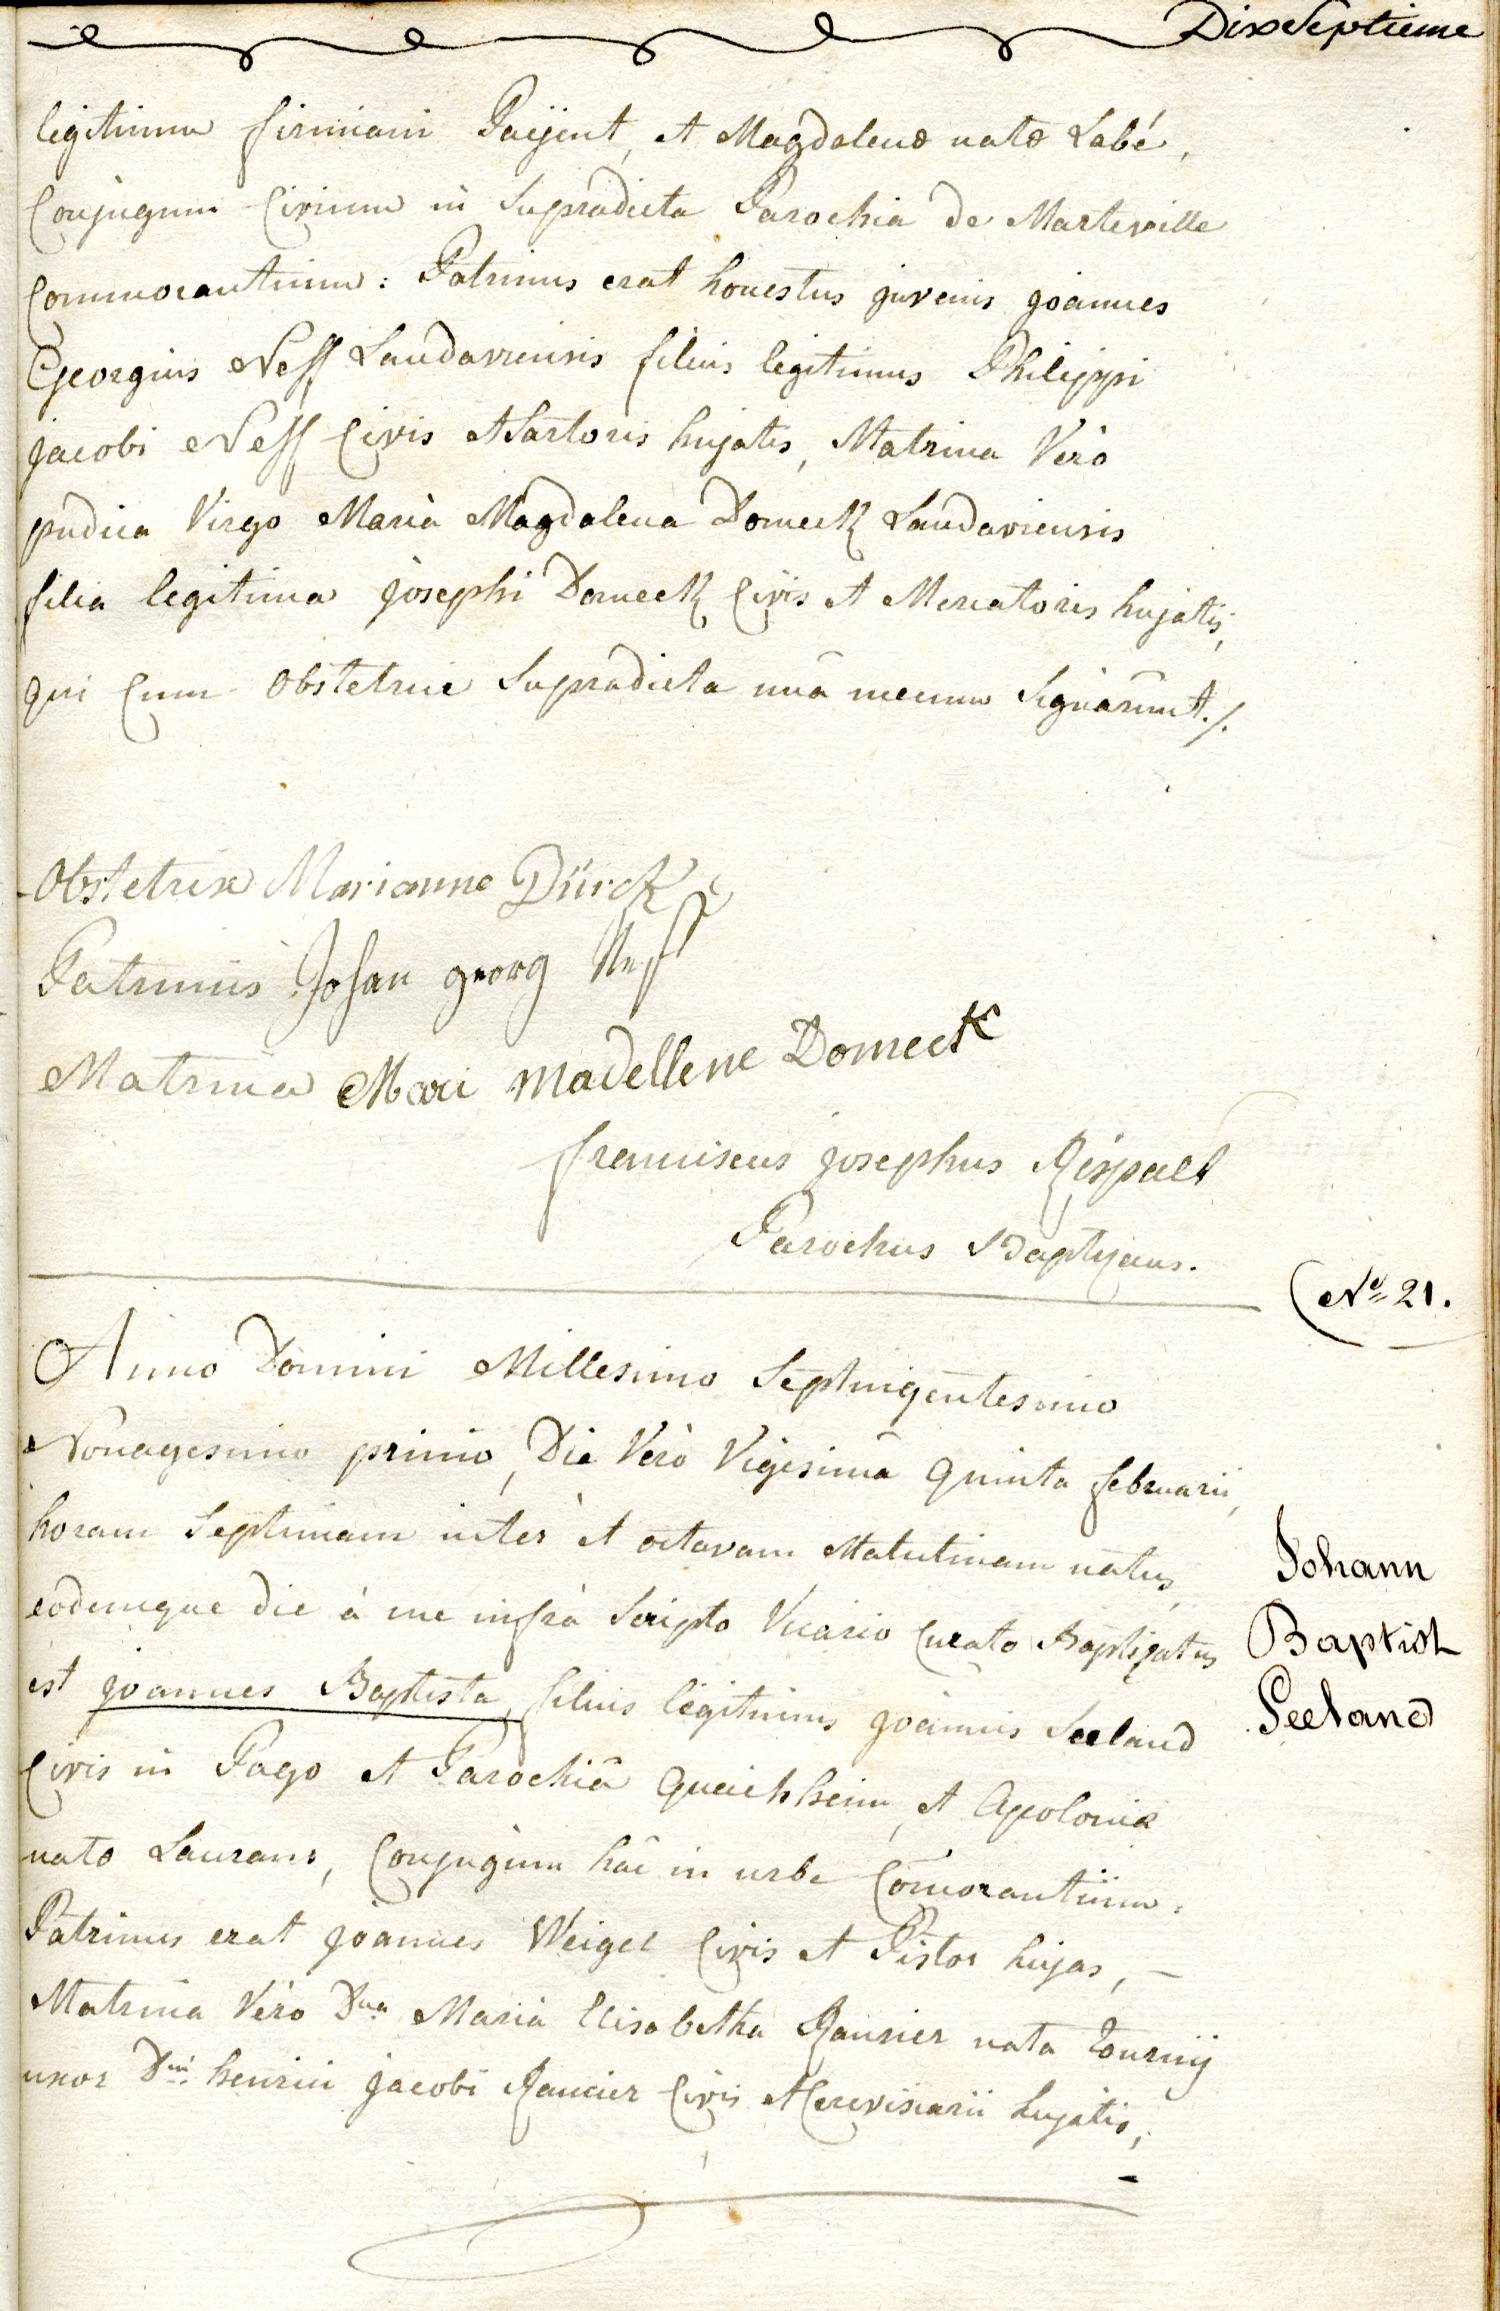 DixSeptieme
legitimu firmiani Paÿent, et Magdalenæ natæ Labé,
Conjugum Civium in Supradicta Parochia de Marteville
Commorantium: Patrinus erat honestus juvenis joannes
Georgius Neff Landaviensis filius legitimus Philippi
jacobi Neff Civis et Sartoris hujatis, Matrina Verò
pudica Virgo Maria Magdalena Domeck Landaviensis
filia legitima josephi Domeck Civis et Mercatoris hujatis,
qui Cum Obstetrice Supradicta unâ mecum Signârunt./.
Obstetrix Marianna Dürck
Patrinus Johan georg Neff
Matrina Mari Madellene Domeck
franciscus josephus
Parochus Baptizans.
No 21.
Anno Domini Millesimo Septingentesimo
Nonagesimo primo, Die Verò Vigesimâ Quinta februarii,
horam Septimam inter et octavam Matutinam natus,
eodemque die à me infrà Scripto Vicario Curato Baptizatus
est joannes Baptista, filius legitimus joannis Seeland
Civis in Pago et Parochiâ Queichheim, et Apoloniæ
natæ Laurans, Conjugum hâc in urbe Comorantium.
Patrinus erat joannes Weigel Civis et Pistor hujas, –
Matrina Vèro Dna Maria Elisabetha Raucier nata Tournÿ
uxor Dni henrici jacobi Raucier Civis et Cerevisiarii hujatis,
-
Johann
Baptist
Seeland